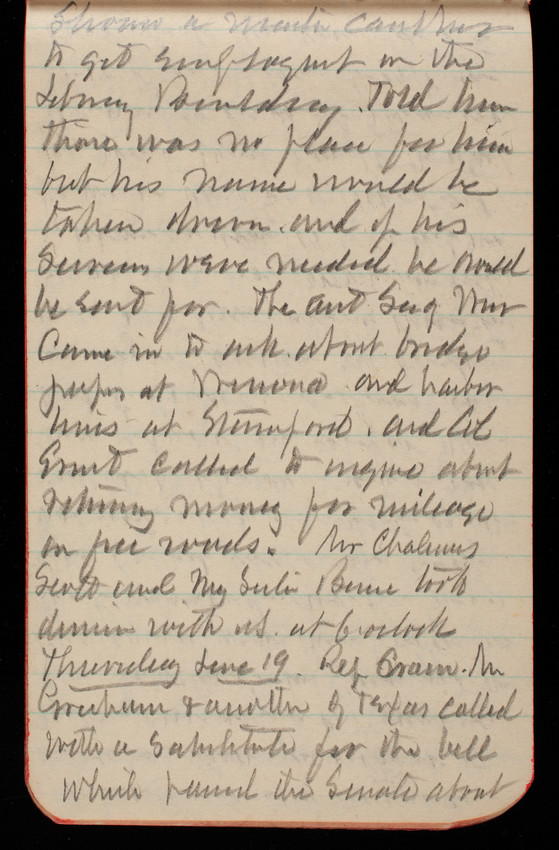 to get employment on the
Library Building. Told him
there was no place for him
but his name would be
taken down and if his
Services were needed he would
be sent for. The Act Secy War
Came in to ask about bridge
papers at Winona and harbor
lines at Stamford. and Col
Ernst called to inquire about
money for mileage
on free roads. Mr Chalmers
Scott and Mr took
dinner with us at 6 oclock
Thursday June 19. Rep Crain. Mr
& another of Texas called
with a Substitute for the bill
which passed the Senate about